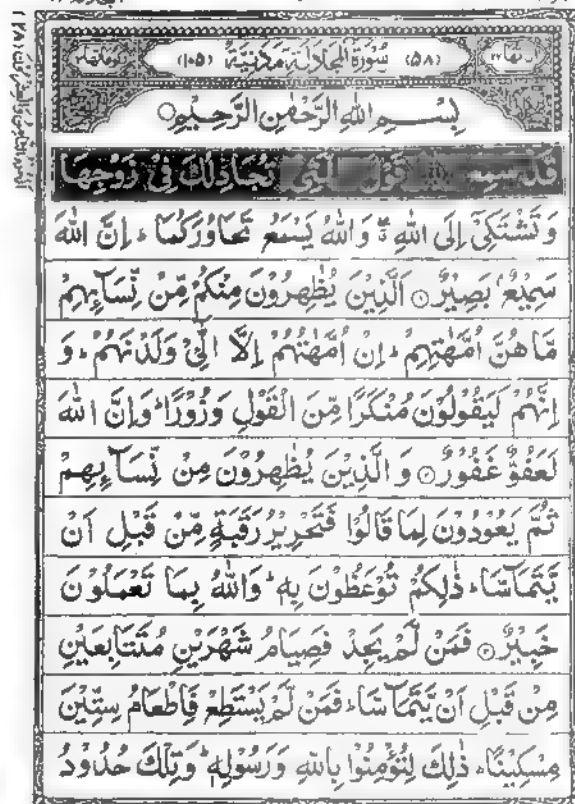 (۵۸) سُوْرَةُ الْمُجَادَلَةِ مَدَنِیَّةٌ (۱۰۵)
بِسْمِ اللّٰهِ الرَّحْمٰنِ الرَّحِیْمِ
قَدْ سَمِعَ اللّٰهُ قَوْلَ الَّتِیْ تُجَادِلُكَ فِیْ زَوْجِهَا
وَ تَشْتَكِیْۤ اِلَى اللّٰهِ ۖۗ وَ اللّٰهُ یَسْمَعُ تَحَاوُرَكُمَا ؕ اِنَّ اللّٰهَ
سَمِیْعٌۢ بَصِیْرٌ ۝ اَلَّذِیْنَ یُظٰهِرُوْنَ مِنْكُمْ مِّنْ نِّسَآىِٕهِمْ
مَّا هُنَّ اُمَّهٰتِهِمْ ؕ اِنْ اُمَّهٰتُهُمْ اِلَّا الّٰٓـِٔیْ وَلَدْنَهُمْ ؕ وَ
اِنَّهُمْ لَیَقُوْلُوْنَ مُنْكَرًا مِّنَ الْقَوْلِ وَ زُوْرًا ؕ وَ اِنَّ اللّٰهَ
لَعَفُوٌّ غَفُوْرٌ ۝ وَ الَّذِیْنَ یُظٰهِرُوْنَ مِنْ نِّسَآىِٕهِمْ
ثُمَّ یَعُوْدُوْنَ لِمَا قَالُوْا فَتَحْرِیْرُ رَقَبَةٍ مِّنْ قَبْلِ اَنْ
یَّتَمَآسَّا ؕ ذٰلِكُمْ تُوْعَظُوْنَ بِهٖ ؕ وَ اللّٰهُ بِمَا تَعْمَلُوْنَ
خَبِیْرٌ ۝ فَمَنْ لَّمْ یَجِدْ فَصِیَامُ شَهْرَیْنِ مُتَتَابِعَیْنِ
مِنْ قَبْلِ اَنْ یَّتَمَآسَّا ؕ فَمَنْ لَّمْ یَسْتَطِعْ فَاِطْعَامُ سِتِّیْنَ
مِسْكِیْنًا ؕ ذٰلِكَ لِتُؤْمِنُوْا بِاللّٰهِ وَ رَسُوْلِهٖ ؕ وَ تِلْكَ حُدُوْدُ